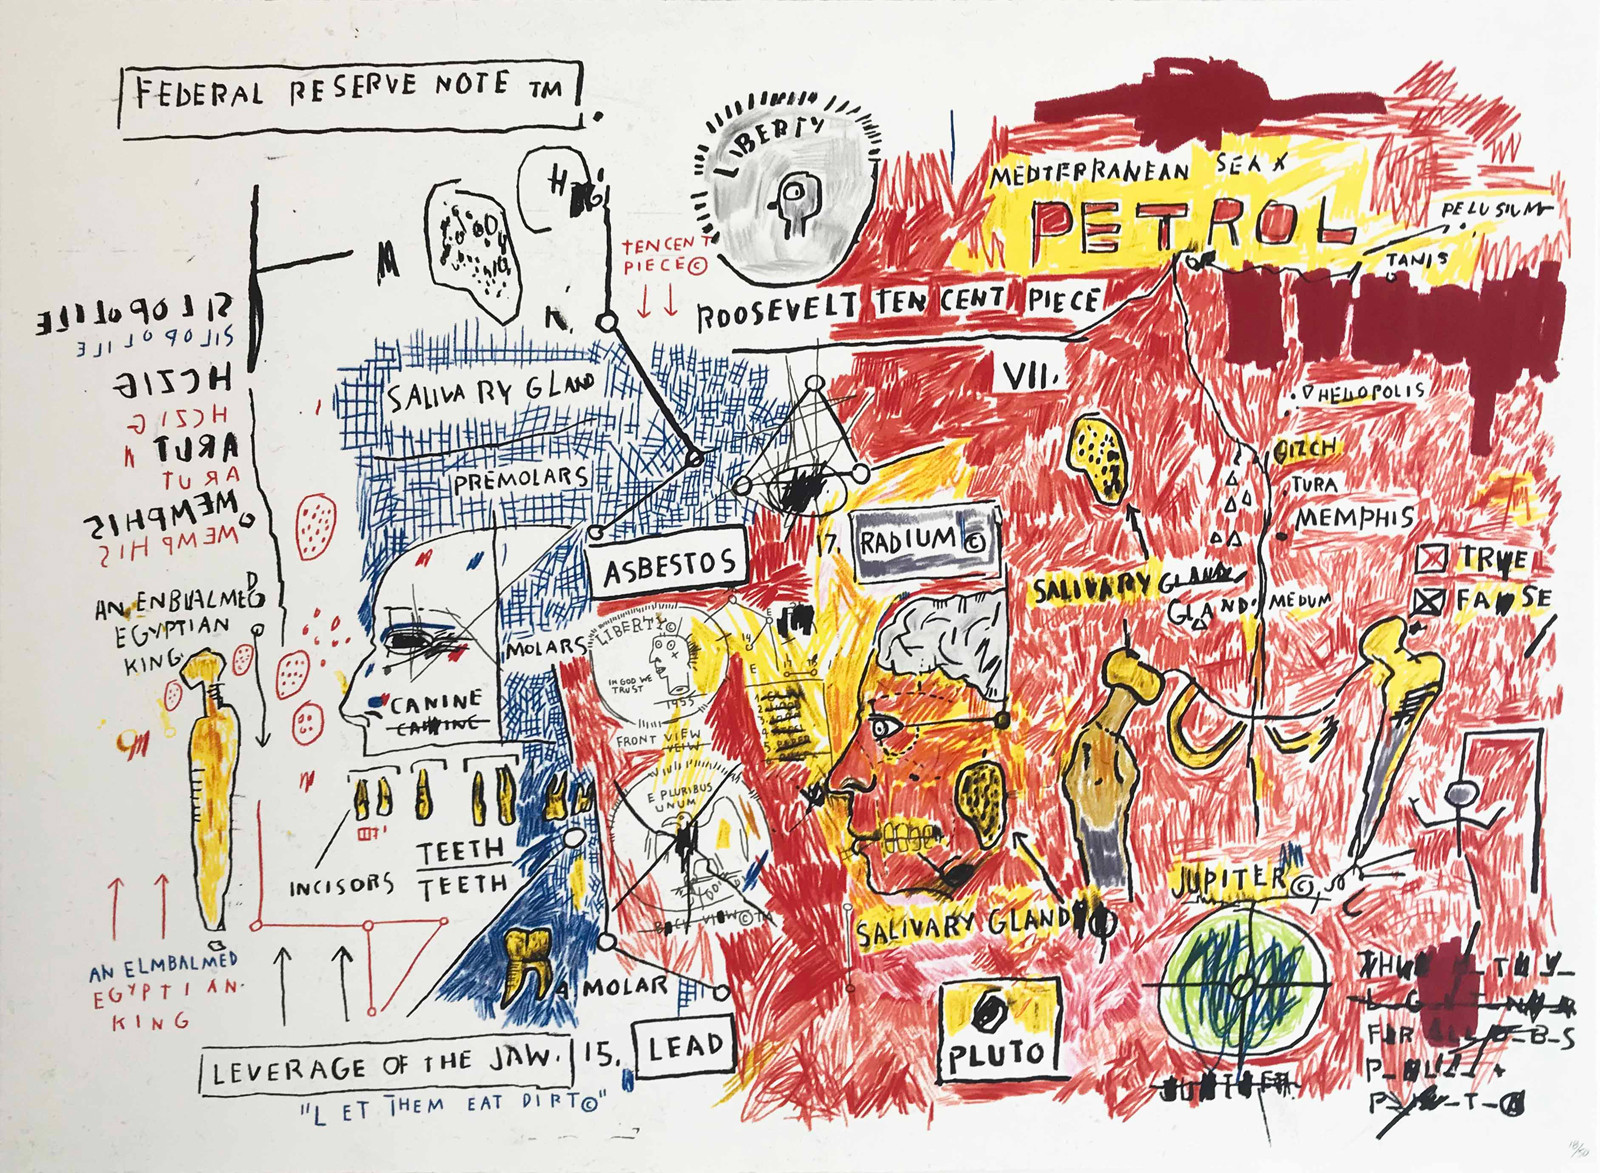 FEDERAL RESERVE NOTE TM
LIBERTY
TEN CENT
PIECE©
ROOSEVELT TEN CENT PIECE
MEDTERRANEAN SEA X
PETROL
PELUSIUM
TANIS
VII.
SILOPOLILE
SILOPOLILE
HCZIG
HCZIG
ARUT
ARUT
MEMPHIS
MEMPHIS
AN ENBVALMED
EGYPTIAN
KING
AN ELMBALMED
EGYPTIAN.
KING
SALIVARY GLAND
PREMOLARS
ASBESTOS
MOLARS
CANINE
CANINE
INCISORS
TEETH
TEETH
A MOLAR
LEVERAGE OF THE JAW.
15.
LEAD
"LET THEM EAT DIRT©"
LIBERTY©
IN GOD WE
TRUST
1955
FRONT VIEW
VEIW
E PLURIBUS
UNUM
BACK VIEW©TM
7.
RADIUM ©
SALIVARY GLAND
GLAND.
HELIOPOLIS
GIZCH
TURA
MEMPHIS
MEDUM
TRUE
FALSE
SALIVARY GLAND
PLUTO
JUPITER©
JUPITER
18/50